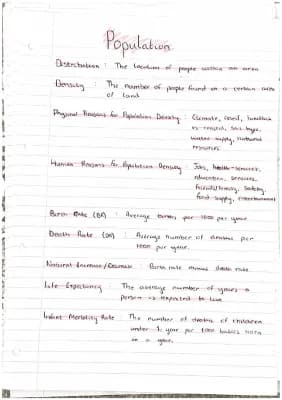 Population
Distribution : The location of people within an area
Density : The number of people found in a certain area
of land
Physical Reasons for Population Density : Climate, relief, landlock
vs coastal, soil type,
water supply, natural
resources
Human Reasons for Population Density : Jobs, health services,
education, services,
friends/family, safety,
food supply, entertainment
Birth Rate (BR) : Average births per 1000 per year
Death Rate (DR) : Average number of deaths per
1000 per year.
Natural Increase/Decrease : Birth rate minus death rate.
Life Expectancy : The average number of years a
person is expected to live
Infant Mortality Rate : The number of deaths of children
under 1 year per 1000 babies born
in a year.